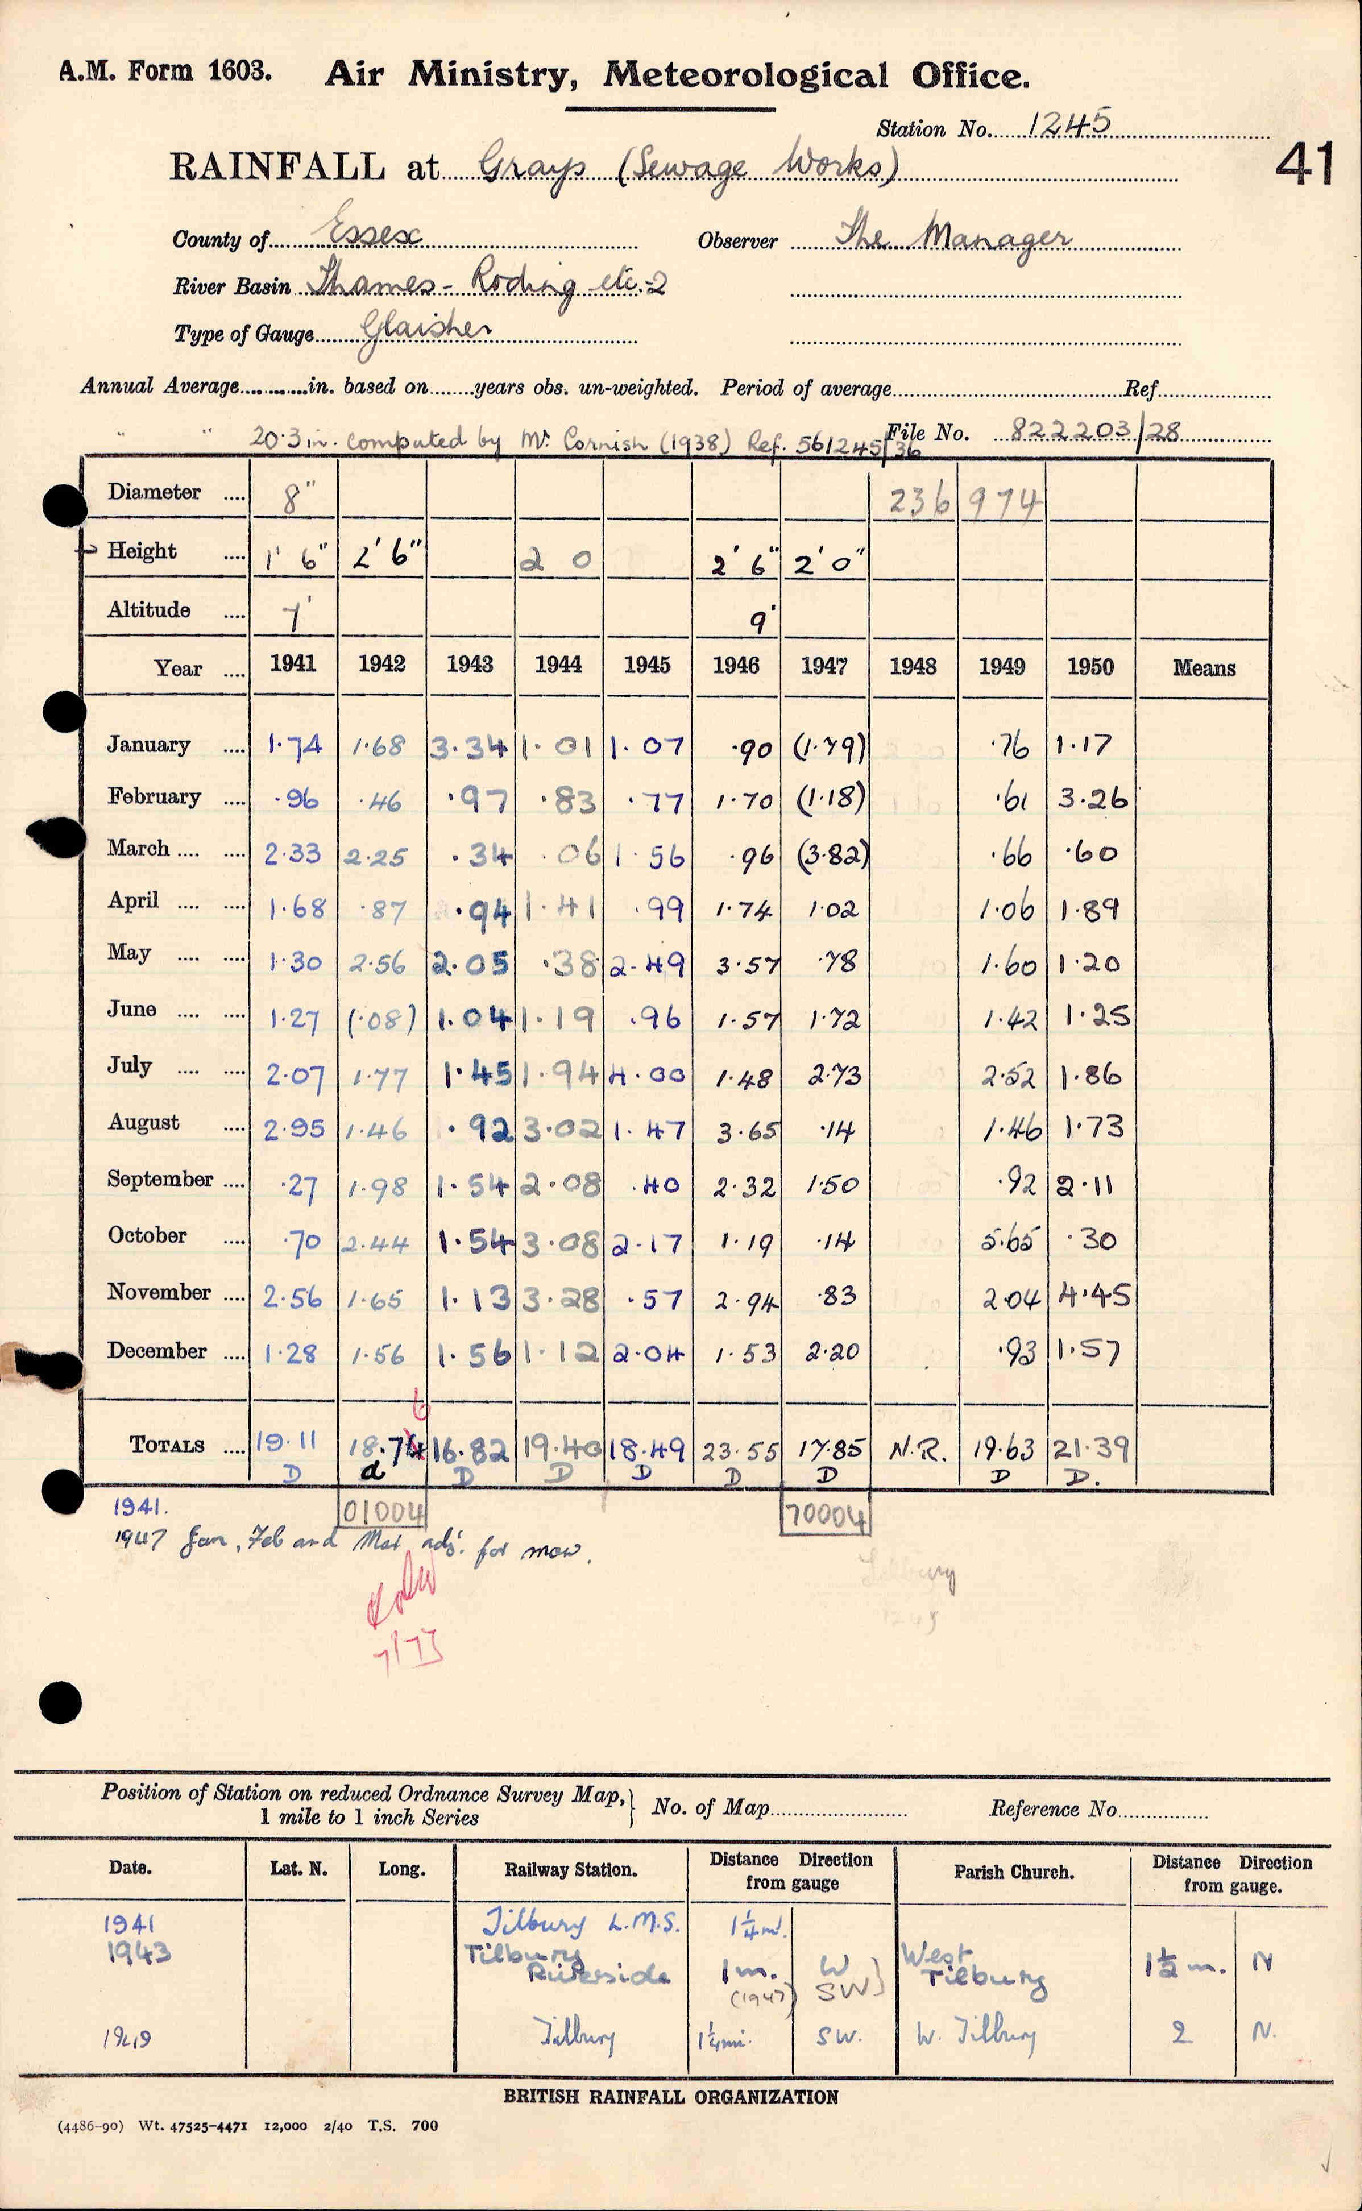 A.M. Form 1603. Air Ministry, Meteorological Office.
Station No. 1245
41
RAINFALL at Grays (Sewage Works)
County of Essex Observer The Manager
River Basin Thames - Roding etc. 2
Type of Gauge Glaisher
Annual Average in. based on years obs. un-weighted. Period of average Ref.
" " 20.3 in. computed by Mr Cornish (1938) Ref. 561245/36 File No. 822203/28
Diameter 8" 236 974
Height 1' 6" 2' 6" 2 0 2' 6" 2' 0"
Altitude 7' 9'
Year 1941 1942 1943 1944 1945 1946 1947 1948 1949 1950 Means
January 1.74 1.68 3.34 1.01 1.07 .90 (1.79) .76 1.17
February .96 .46 .97 .83 .77 1.70 (1.18) .61 3.26
March 2.33 2.25 .34 .06 1.56 .96 (3.82) .66 .60
April 1.68 .87 .94 1.41 .99 1.74 1.02 1.06 1.89
May 1.30 2.56 2.05 .38 2.49 3.57 .78 1.60 1.20
June 1.27 (.08) 1.04 1.19 .96 1.57 1.72 1.42 1.25
July 2.07 1.77 1.45 1.94 4.00 1.48 2.73 2.52 1.86
August 2.95 1.46 .92 3.02 1.47 3.65 .14 1.46 1.73
September .27 1.98 1.54 2.08 .40 2.32 1.50 .92 2.11
October .70 2.44 1.54 3.08 2.17 1.19 .14 5.65 .30
November 2.56 1.65 1.13 3.28 .57 2.94 .83 2.04 4.45
December 1.28 1.56 1.56 1.12 2.04 1.53 2.20 .93 1.57
6
TOTALS 19.11 18.74 16.82 19.40 18.49 23.55 17.85 N.R. 19.63 21.39
D d D D D D D D D.
1941. 01004 70004
1947 Jan, Feb and Mar adj. for snow.
Tilbury
1245
7/73
Position of Station on reduced Ordnance Survey Map, 1 mile to 1 inch Series } No. of Map Reference No.
Date. Lat. N. Long. Railway Station. Distance Direction from gauge Parish Church. Distance Direction from gauge.
1941 Tilbury L.M.S. 1¼ m.
1943 Tilbury Riverside 1 m. (1947) W SW) West Tilbury 1½ m. N
1949 Tilbury 1¼ mi. SW. W. Tilbury 2 N.
BRITISH RAINFALL ORGANIZATION
(4486-90) Wt. 47525-4471 12,000 2/40 T.S. 700